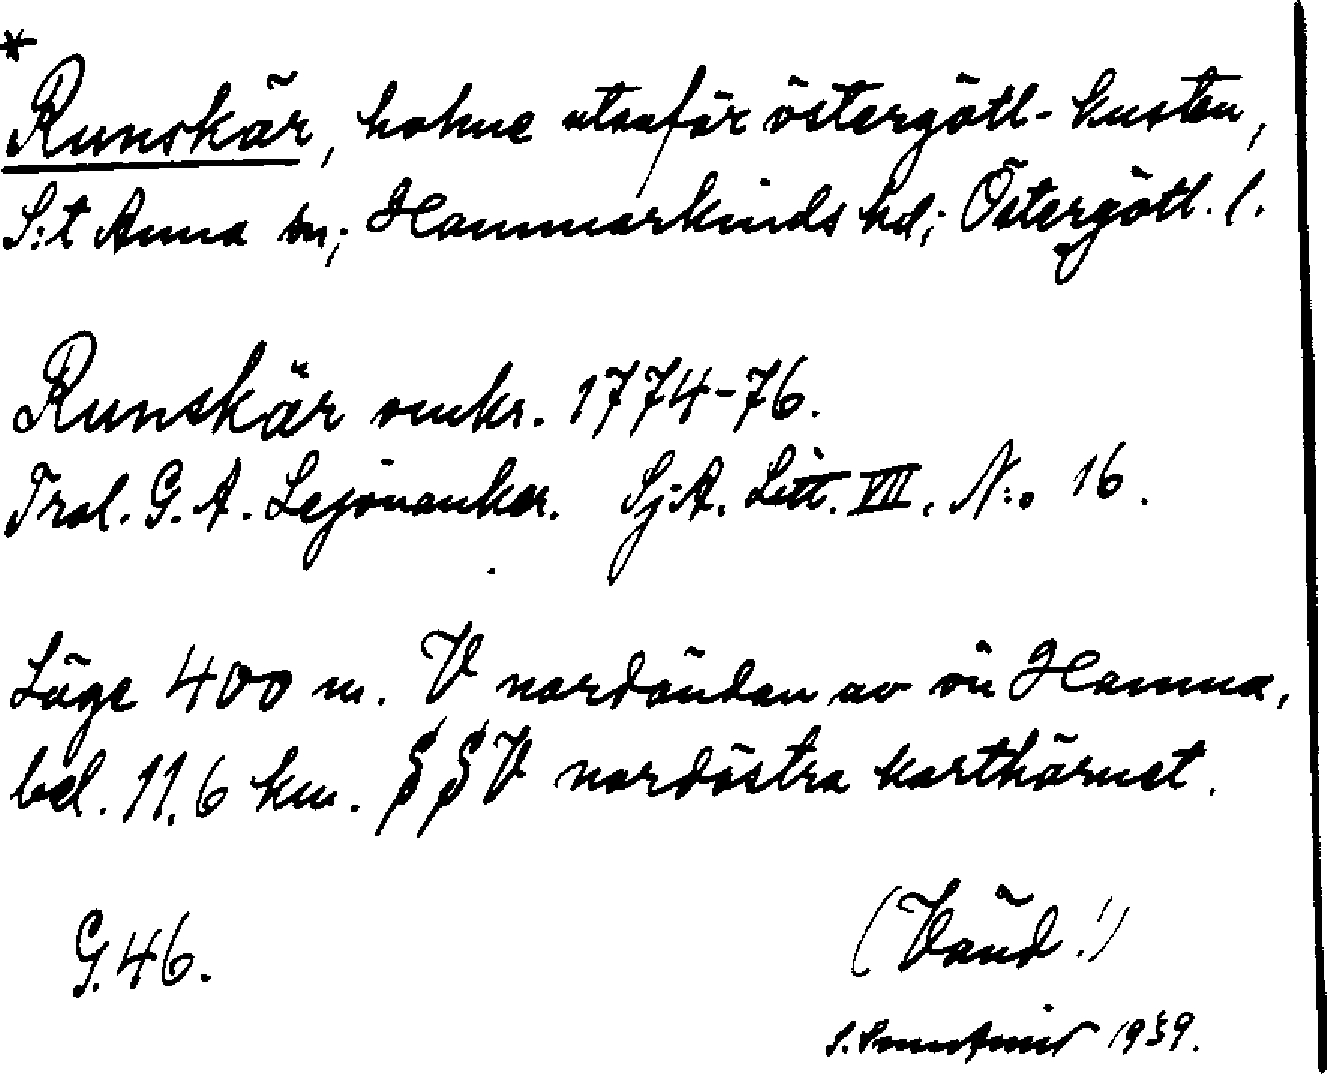 *
Runskär, holme utanför östergötl-kusten,
S:t Anna sn; Hammarkinds hd; Östergötl. l.
Runskär omkr. 1774-76.
Trol. G. A. Lejonanker. Sj:A. Litt. VIII. N:o 16.
Läge 400 m. V nordändan av ön Hamna,
bel. 11.6 km. SSV nordöstra karthörnet.
G.46.
(Vänd!)
S. 1939.